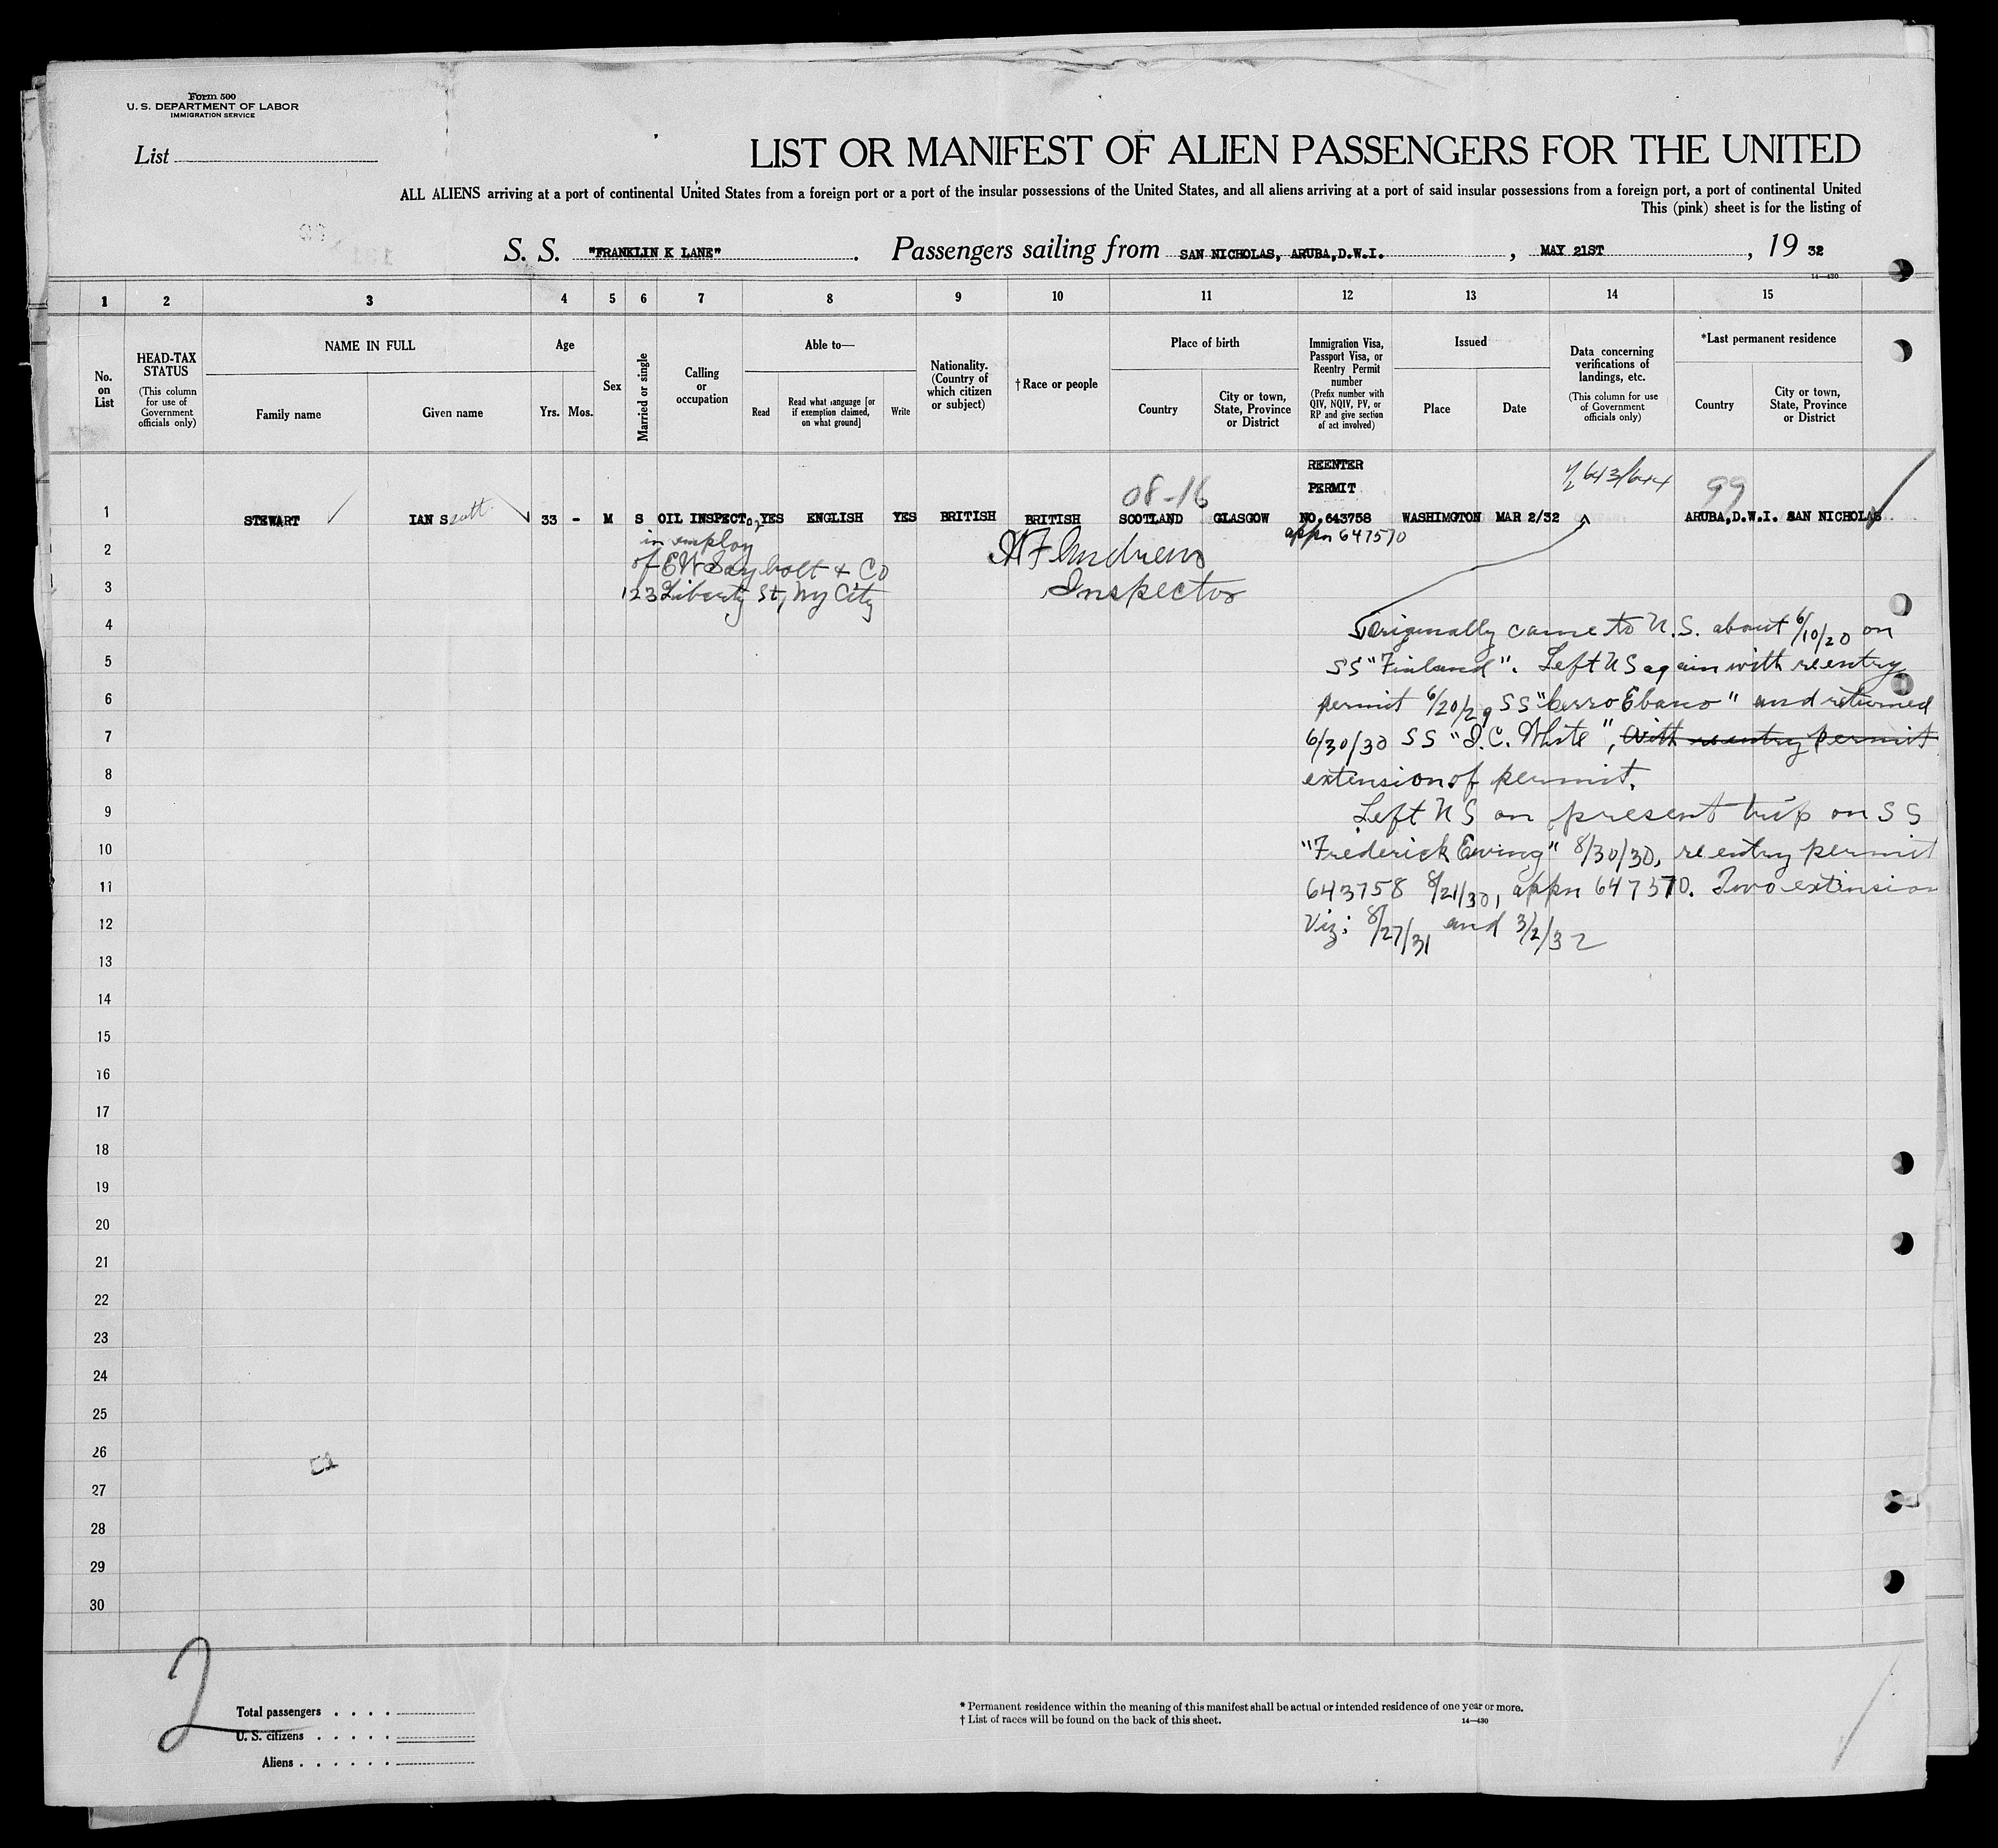 Form 500
U. S. DEPARTMENT OF LABOR
IMMIGRATION SERVICE
List
LIST OR MANIFEST OF ALIEN PASSENGERS FOR THE UNITED
ALL ALIENS arriving at a port of continental United States from a foreign port or a port of the insular possessions of the United States, and all aliens arriving at a port of said insular possessions from a foreign port, a port of continental United
This (pink) sheet is for the listing of
S. S. "FRANKLIN K LANE". Passengers sailing from SAN NICHOLAS, ARUBA,D.W.I. , MAY 21ST , 19 32
14—430
1 2 3 4 5 6 7 8 9 10 11 12 13 14 15
No. on List
HEAD-TAX STATUS
(This column for use of Government officials only)
NAME IN FULL
Family name
Given name
Age
Yrs. Mos.
Sex
Married or single
Calling or occupation
Able to—
Read
Read what language [or if exemption claimed, on what ground]
Write
Nationality. (Country of which citizen or subject)
†Race or people
Place of birth
Country
City or town, State, Province or District
Immigration Visa, Passport Visa, or Reentry Permit number
(Prefix number with QIV, NQIV, PV, or RP and give section of act involved)
Issued
Place
Date
Data concerning verifications of landings, etc.
(This column for use of Government officials only)
*Last permanent residence
Country
City or town, State, Province or District
REENTER
PERMIT
08-16
99
1 STEWART IAN Scott 33 - M S OIL INSPECT. YES ENGLISH YES BRITISH BRITISH SCOTLAND GLASGOW NO.643758 WASHIMGTON MAR 2/32 ARUBA,D.W.I. SAN NICHOLAS
appn 647570
in employ
of EW Saybolt & Co
123 Liberty St, NY City
Inspector
Originally came to U.S. about 6/10/20 on
SS "Finland". Left US again with reentry
permit 6/20/29 SS "Cerro Ebano" and returned
6/30/30 SS "I.C. White", with reentry permit
extension of permit.
Left US on present trip on SS
"Frederick Ewing" 8/30/30, reentry permit
643758 8/21/30, appn 647570. Two extension
Viz: 8/27/31 and 3/2/32
2
3
4
5
6
7
8
9
10
11
12
13
14
15
16
17
18
19
20
21
22
23
24
25
26
27
28
29
30
2
Total passengers
U. S. citizens
Aliens
* Permanent residence within the meaning of this manifest shall be actual or intended residence of one year or more.
† List of races will be found on the back of this sheet.
14—430